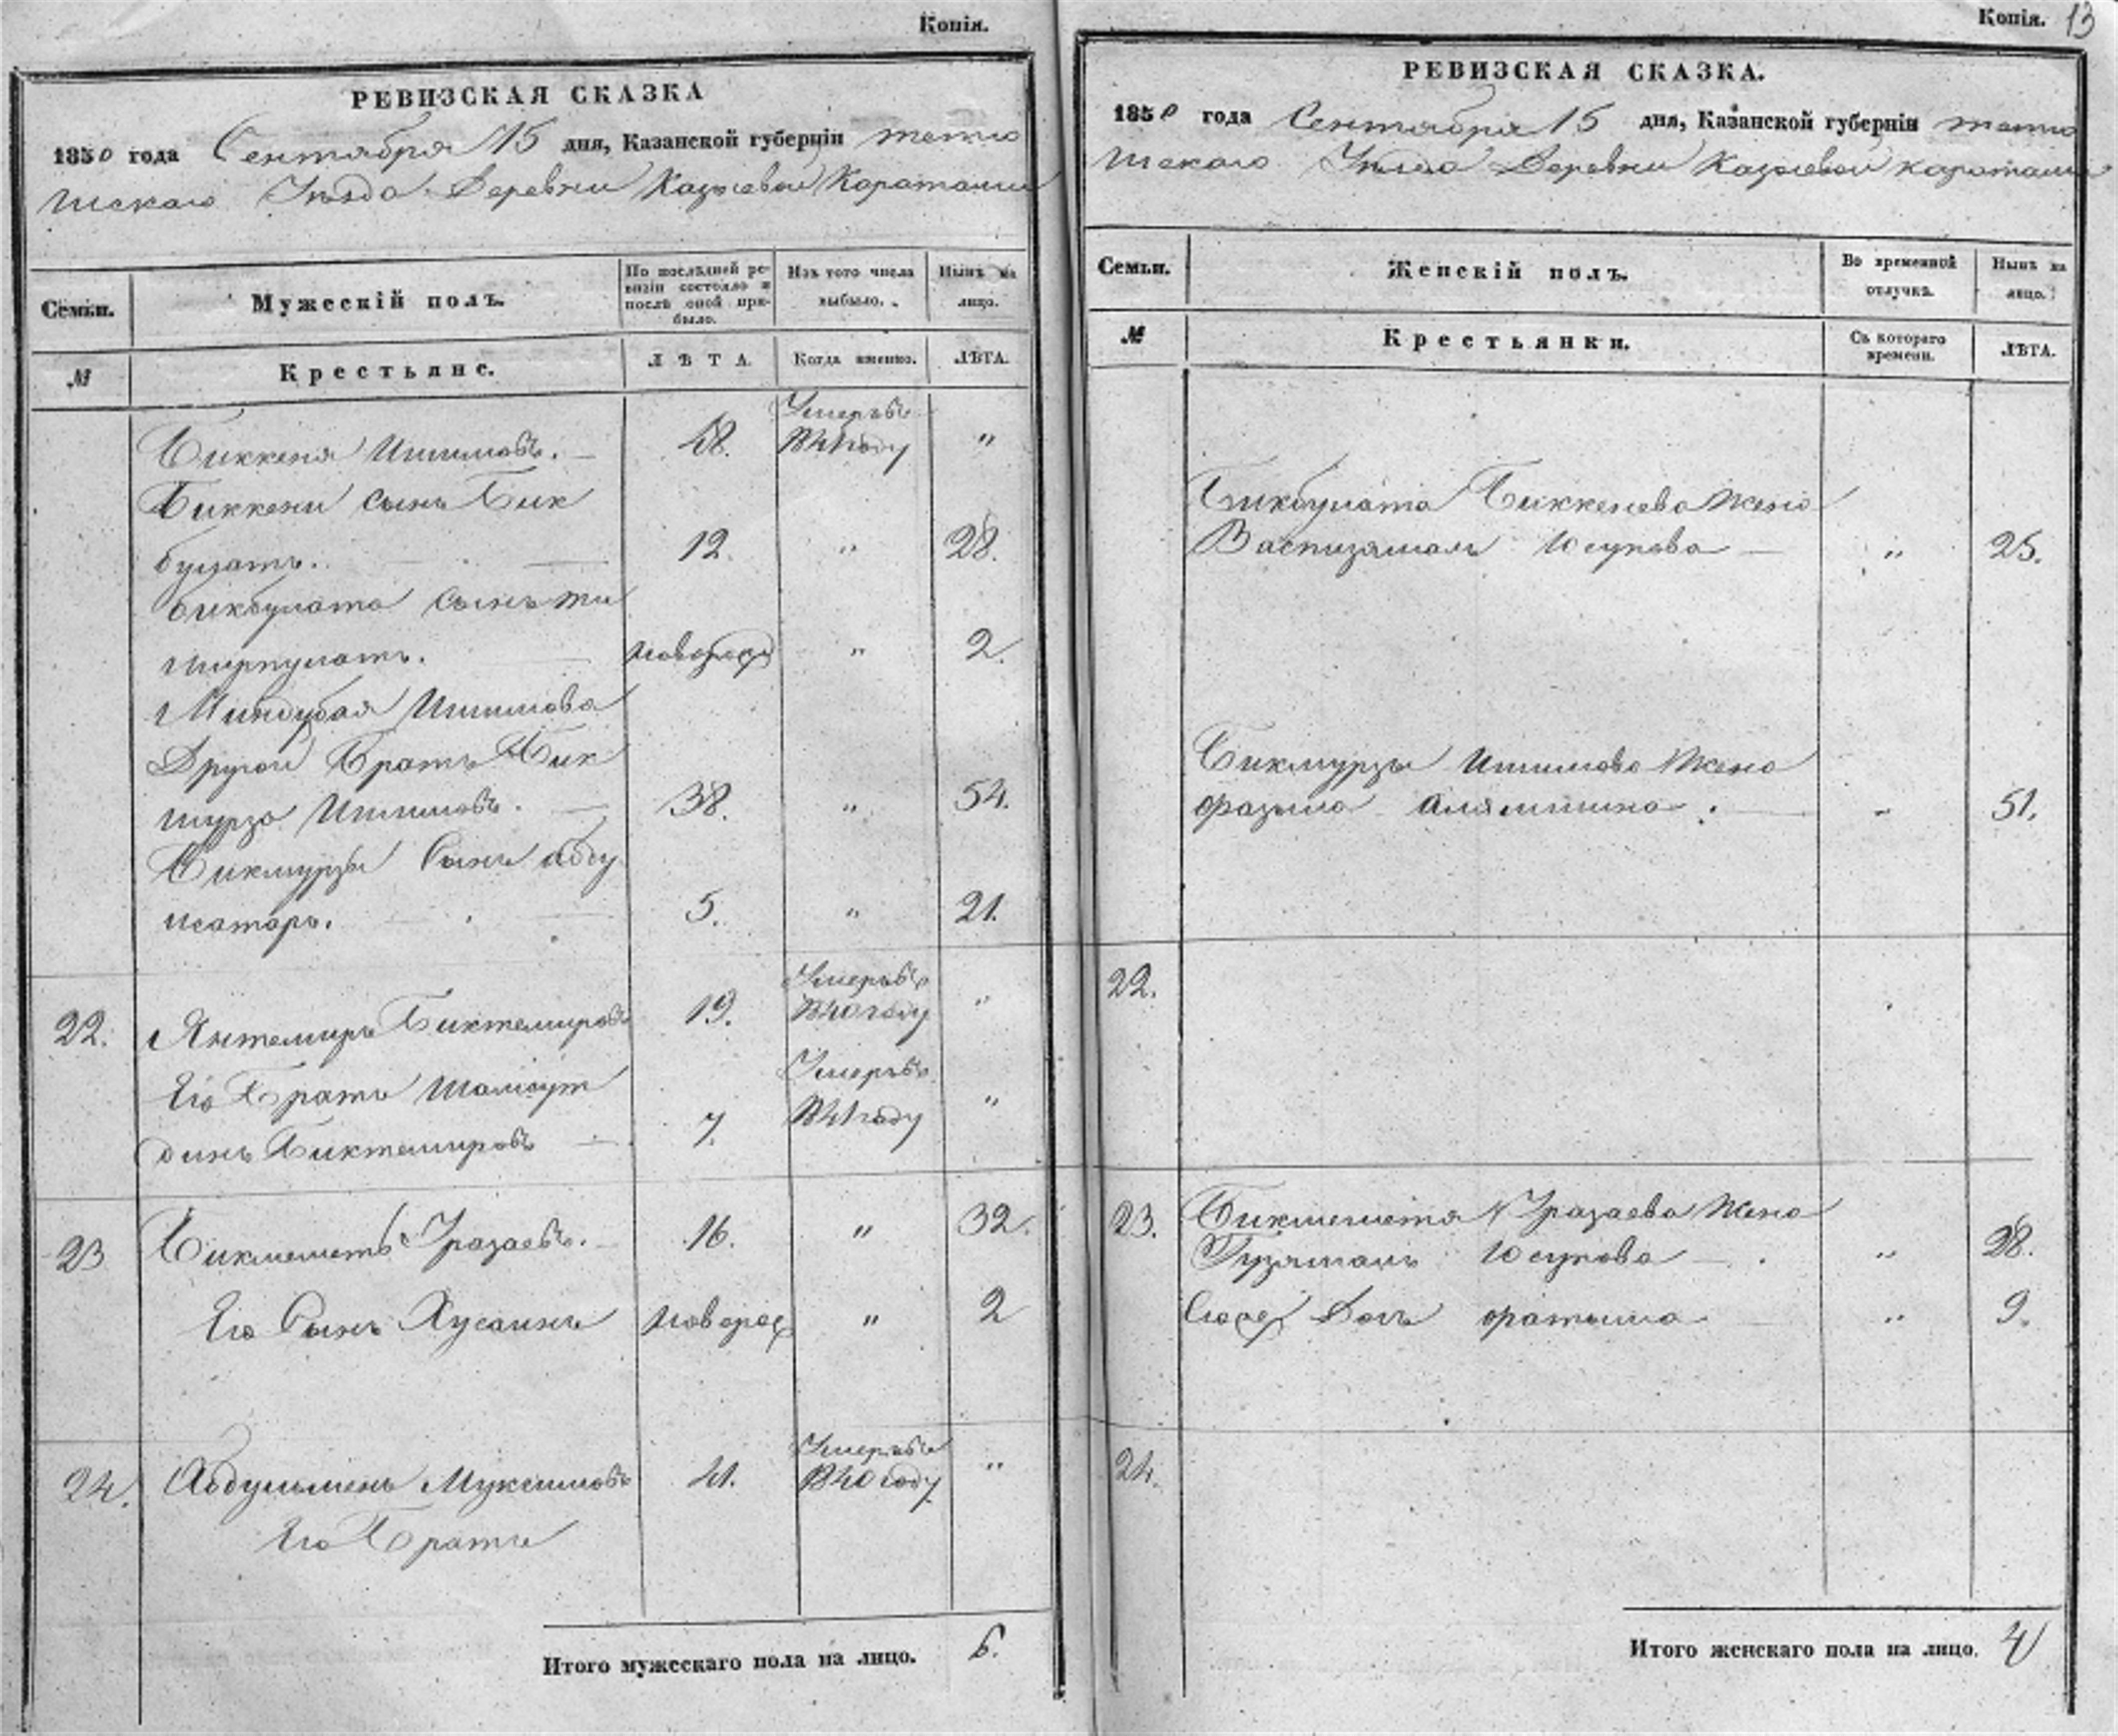 Копія.
РЕВИЗСКАЯ СКАЗКА
1850 года Сентября 15 дня, Казанской губерніи тетю
шскаго Уѣзда Деревни Казыевой Каратаиы
Семьи. Мужескій полъ. По послѣдней ревизіи состояло и послѣ оной прибыло. Изъ того числа выбыло. Нынѣ на лицо.
№ Крестьяне. ЛѢТА. Когда именно. ЛѢТА.
Биккеня Ишимовъ. 48. Умеръ въ 841 году "
Биккени сынъ Бик
булатъ. 12. " 28.
Бикбулата сынъ Ти
мирпулатъ. новорож " 2.
Миндубая Ишимова
Другой Братъ Бик
мурза Ишимовъ. 38. " 54.
Бикмурзы Сынъ абду
исатаръ. 5. " 21.
22. Янтемиръ Биктемировъ 19. Умеръ въ 840 году "
Его Братъ Шамсут
динъ Биктемировъ 7. Умеръ въ 841 году "
23 Бикмеметь Уразаевъ. 16. " 32.
Его Сынъ Хусаинъ новорож " 2
24. Абдульменъ Муксимовъ 41. Умеръ въ 840 году "
Его Братъ
Итого мужескаго пола на лицо. 6.
Копія. 13
РЕВИЗСКАЯ СКАЗКА.
1850 года Сентября 15 дня, Казанской губерніи тетю
шскаго Уѣзда Деревни Казыевой Каратаиы
Семьи. Женскій полъ. Во временной отлучкѣ. Нынѣ на лицо.
№ Крестьянки. Съ котораго времени. ЛѢТА.
Бикбулата Биккенева Жена
Васпизямалъ Юсупова " 25.
Бикмурзы Ишимова Жена
Фазыла Алямшина. " 51.
22.
23. Бикмеметя Уразаева Жена
Гузямалъ Юсупова " 28.
Дочь Фатыма " 9.
24.
Итого женскаго пола на лицо. 4